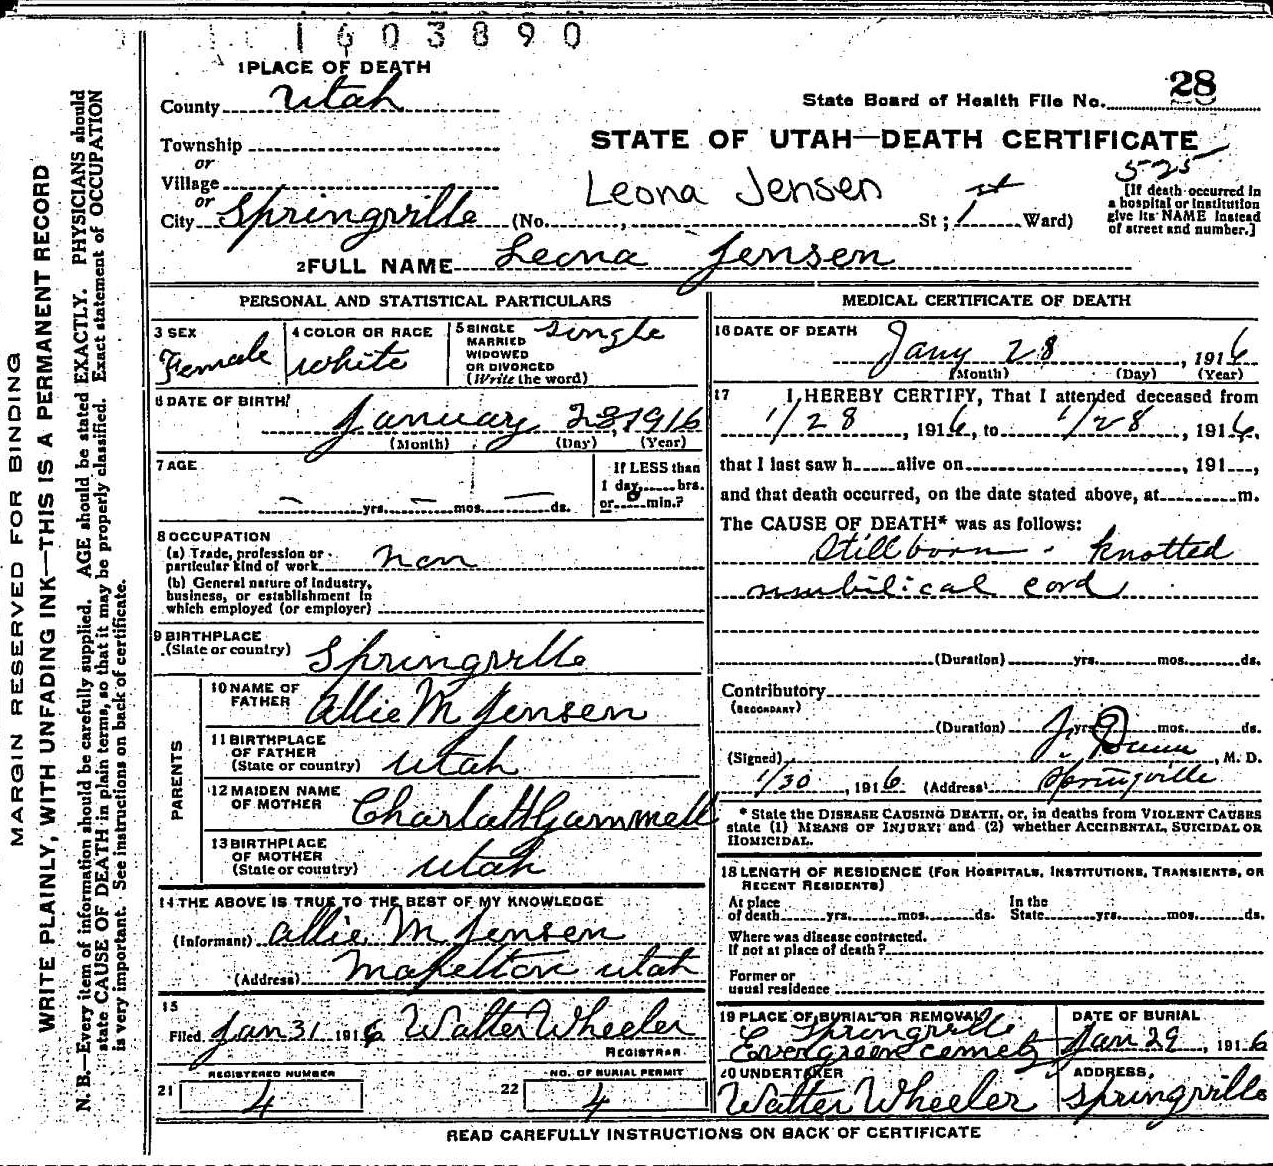 1603890
1 PLACE OF DEATH
County Utah
State Board of Health File No. 28
Township
or
Village
or
City Springville (No. , St; 1st Ward)
STATE OF UTAH—DEATH CERTIFICATE
525
Leona Jensen
[If death occurred in
a hospital or institution
give its NAME instead
of street and number.]
2 FULL NAME Leona Jensen
PERSONAL AND STATISTICAL PARTICULARS
3 SEX
Female
4 COLOR OR RACE
White
5 SINGLE
MARRIED
WIDOWED
OR DIVORCED
(Write the word)
Single
6 DATE OF BIRTH
January 28, 1916
(Month) (Day) (Year)
7 AGE
— yrs. — mos. — ds.
If LESS than
1 day, hrs.
or 0 min.?
8 OCCUPATION
(a) Trade, profession or
particular kind of work non
(b) General nature of industry,
business, or establishment in
which employed (or employer)
9 BIRTHPLACE
(State or country) Springville
PARENTS
10 NAME OF
FATHER Allie M Jensen
11 BIRTHPLACE
OF FATHER
(State or country) Utah
12 MAIDEN NAME
OF MOTHER Charlott Gammell
13 BIRTHPLACE
OF MOTHER
(State or country) Utah
14 THE ABOVE IS TRUE TO THE BEST OF MY KNOWLEDGE
(Informant) Allie M Jensen
(Address) Mapelton Utah
15
Filed Jan 31 1916 Walter Wheeler
REGISTRAR
REGISTERED NUMBER
21 4
NO. OF BURIAL PERMIT
22 4
MEDICAL CERTIFICATE OF DEATH
16 DATE OF DEATH
Jany 28, 1916
(Month) (Day) (Year)
17 I HEREBY CERTIFY, That I attended deceased from
1/28, 1916, to 1/28, 1916,
that I last saw h alive on , 191 ,
and that death occurred, on the date stated above, at m.
The CAUSE OF DEATH* was as follows:
Stillborn. Knotted
umbilical cord
(Duration) yrs. mos. ds.
Contributory
(SECONDARY)
(Duration) yrs. mos. ds.
(Signed) J. Dunn, M. D.
1/30, 1916 (Address) Springville
* State the DISEASE CAUSING DEATH, or, in deaths from VIOLENT CAUSES
state (1) MEANS OF INJURY; and (2) whether ACCIDENTAL, SUICIDAL OR
HOMICIDAL.
18 LENGTH OF RESIDENCE (FOR HOSPITALS, INSTITUTIONS, TRANSIENTS, OR
RECENT RESIDENTS)
At place
of death yrs. mos. ds.
In the
State yrs. mos. ds.
Where was disease contracted.
If not at place of death?
Former or
usual residence
19 PLACE OF BURIAL OR REMOVAL
Springville
Evergreen
DATE OF BURIAL
Jan 29, 1916
20 UNDERTAKER
Walter Wheeler
ADDRESS.
Springville
READ CAREFULLY INSTRUCTIONS ON BACK OF CERTIFICATE
MARGIN RESERVED FOR BINDING
WRITE PLAINLY, WITH UNFADING INK—THIS IS A PERMANENT RECORD
N. B.—Every item of information should be carefully supplied. AGE should be stated EXACTLY. PHYSICIANS should
state CAUSE OF DEATH in plain terms, so that it may be properly classified. Exact statement of OCCUPATION
is very important. See instructions on back of certificate.